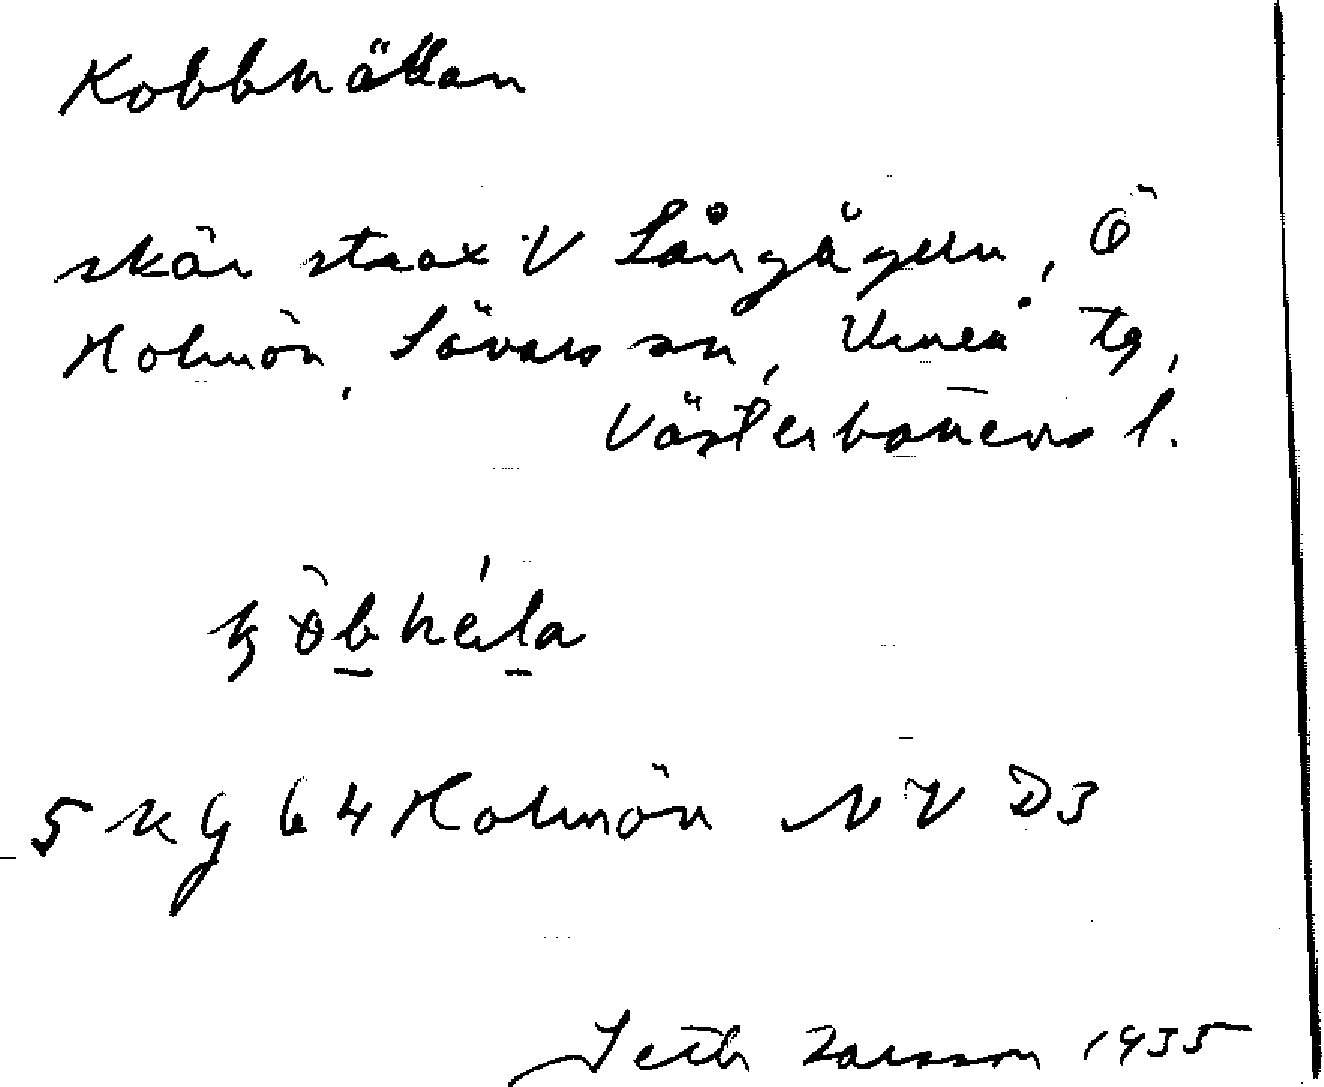 Kobbhällan
skär strax V Långägern, Ö
Holmön, Sävars sn, Umeå tg,
Västerbottens l.
5 KG 64 Holmön NV D3
Seth Larsson 1935